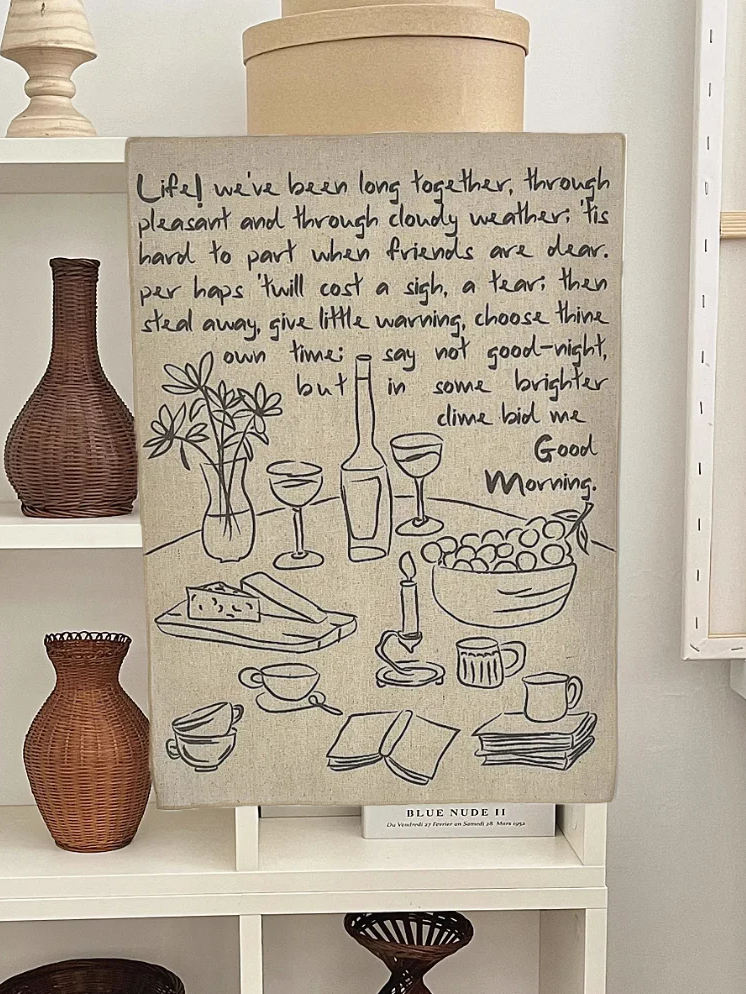 Life! we've been long together, through
pleasant and through cloudy weather; 'tis
hard to part when friends are dear.
per haps 'twill cost a sigh, a tear; then
steal away, give little warning, choose thine
own time; say not good-night,
but in some brighter
clime bid me
Good
Morning.
BLUE NUDE II
Du Vendredi 27 Fevrier au Samedi 28 Mars 1952